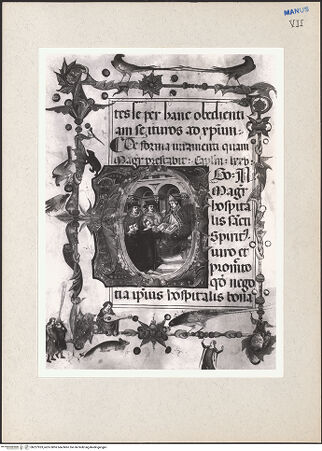 MANUS
VII
tes se per hanc obedienti
am se ituros ad xpium:
De forma iuramenti quam
Magr prestabit: Caplm: 
Ego. N.
Magr
hospita
lis sancti
Spiritus
iuro et
promitto
qd nego
tia ipius hospitalis bona